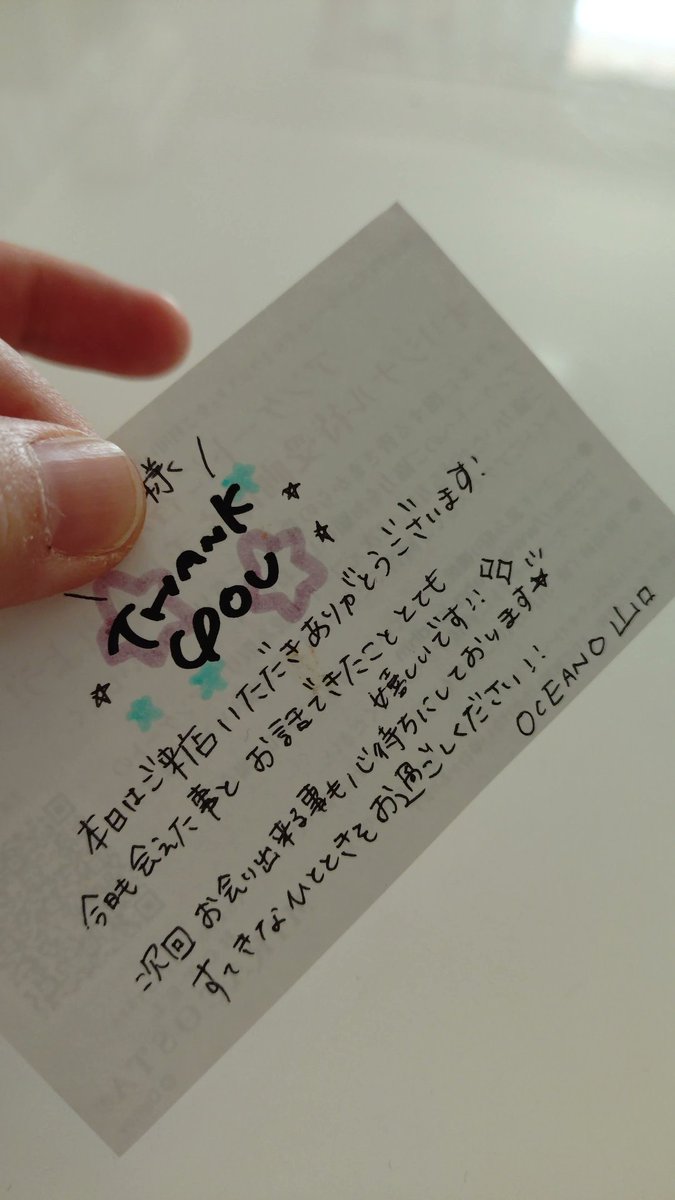 様
THANK
YOU
本日はご来店いただきありがとうございます!
今日も会えた事と お話できたこと とても
嬉しいです!!
次回 お会い出来る事も心待ちにしております☆
すてきなひとときをお過ごしください!!
OCEANO 山口